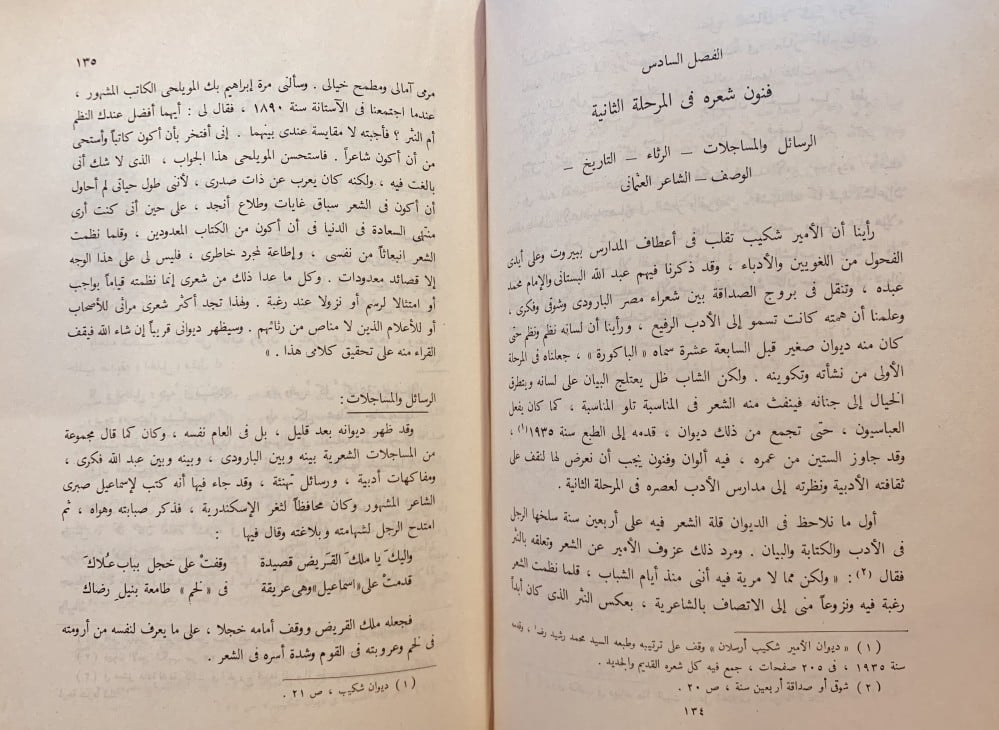 الفصل السادس
فنون شعره فى المرحلة الثانية
الرسائل والمساجلات – الرثاء – التاريخ –
الوصف – الشاعر العثمانى
رأينا أن الأمير شكيب تقلب فى أعطاف المدارس ببيروت وعلى أيدى
الفحول من اللغويين والأدباء ، وقد ذكرنا فيهم عبد الله البستانى والإمام محمد
عبده ، وتنقل فى بروج الصداقة بين شعراء مصر البارودى وشوقى وفكرى ،
وعلمنا أن همته كانت تسمو إلى الأدب الرفيع ، ورأينا أن لسانه نظم ونظم حتى
كان منه ديوان صغير قبل السابعة عشرة سماه « الباكورة » ، جعلناه فى المرحلة
الأولى من نشأته وتكوينه . ولكن الشاب ظل يعتلج البيان على لسانه ويتطرق
الخيال إلى جنانه فينفث منه الشعر فى المناسبة تلو المناسبة ، كما كان يفعل
العباسيون ، حتى تجمع من ذلك ديوان ، قدمه إلى الطبع سنة ١٩٣٥(١) ،
وقد جاوز الستين من عمره ، فيه ألوان وفنون يجب أن نعرض لها لنقف على
ثقافته الأدبية ونظرته إلى مدارس الأدب لعصره فى المرحلة الثانية .
أول ما نلاحظ فى الديوان قلة الشعر فيه على أربعين سنة سلخها الرجل
فى الأدب والكتابة والبيان . ومرد ذلك عزوف الأمير عن الشعر وتعلقه بالنثر
فقال (٢) : « ولكن مما لا مرية فيه أننى منذ أيام الشباب ، قلما نظمت الشعر
رغبة فيه ونزوعاً منى إلى الاتصاف بالشاعرية ، بعكس النثر الذى كان أبداً
( ١ ) « ديوان الأمير شكيب أرسلان » وقف على ترتيبه وطبعه السيد محمد رشيد رضا ، وقدمه
سنة ١٩٣٥ ، فى ٢٠٥ صفحات ، جمع فيه كل شعره القديم والجديد .
( ٢ ) شوقى أو صداقة أربعين سنة ، ص ٢٠ .
١٣٤
١٣٥
مرمى آمالى ومطمح خيالى . وسألنى مرة إبراهيم بك المويلحى الكاتب المشهور ،
عندما اجتمعنا فى الآستانة سنة ١٨٩٠ ، فقال لى : أيهما أفضل عندك النظم
أم النثر ؟ فأجبته لا مقايسة عندى بينهما . إنى أفتخر بأن أكون كاتباً وأستحى
من أن أكون شاعراً . فاستحسن المويلحى هذا الجواب ، الذى لا شك أنى
بالغت فيه ، ولكنه كان يعرب عن ذات صدرى ، لأننى طول حياتى لم أحاول
أن أكون فى الشعر سباق غايات وطلاع أنجد ، على حين أنى كنت أرى
منتهى السعادة فى الدنيا فى أن أكون من الكتاب المعدودين ، وقلما نظمت
الشعر انبعاثاً من نفسى ، وإطاعة لمجرد خاطرى ، فليس لى على هذا الوجه
إلا قصائد معدودات . وكل ما عدا ذلك من شعرى إنما نظمته قياماً بواجب
أو امتثالا لرسم أو نزولا عند رغبة . ولهذا تجد أكثر شعرى مراثى للأصحاب
أو للأعلام الذين لا مناص من رثائهم . وسيظهر ديوانى قريباً إن شاء الله فيقف
القراء منه على تحقيق كلامى هذا . »
الرسائل والمساجلات :
وقد ظهر ديوانه بعد قليل ، بل فى العام نفسه ، وكان كما قال مجموعة
من المساجلات الشعرية بينه وبين البارودى ، وبينه وبين عبد الله فكرى ،
ومفاكهات أدبية ، ورسائل تهنئة ، وقد جاء فيها أنه كتب لإسماعيل صبرى
الشاعر المشهور وكان محافظاً لثغر الإسكندرية ، فذكر صبابته وهواه ، ثم
امتدح الرجل لشهامته وبلاغته وقال فيها :
وإليكَ يا ملكَ القَريض قصيدة وقفتْ على خجل بباب عُلاكَ
قدمتْ على « اسماعيل » وهى عريقة فى « لخم » طامعة بنيلِ رضاك
فجعله ملك القريض ووقف أمامه خجلا ، على ما يعرف لنفسه من أرومته
فى لخم وعروبته فى القوم وشدة أسره فى الشعر .
( ١ ) ديوان شكيب ، ص ٢١ .